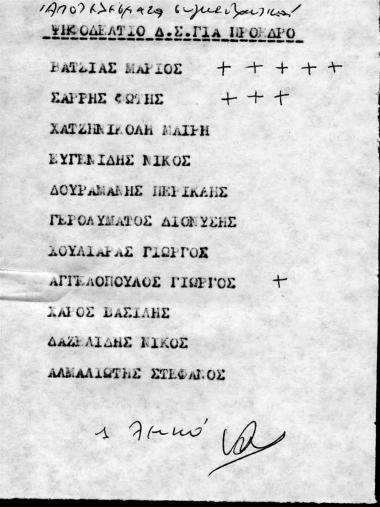 ΑΠΟΤΕΛΕΣΜΑΤΑ συγκεντρωτικά
ΨΗΦΟΔΕΛΤΙΟ Δ.Σ.ΓΙΑ ΠΡΟΕΔΡΟ
ΒΑΤΣΙΑΣ ΜΑΡΙΟΣ + + + + +
ΣΑΡΡΗΣ ΦΩΤΗΣ + + +
ΧΑΤΖΗΝΙΚΟΛΗ ΜΑΙΡΗ
ΕΥΓΕΝΙΔΗΣ ΝΙΚΟΣ
ΔΟΥΡΑΜΑΝΗΣ ΠΕΡΙΚΛΗΣ
ΓΕΡΟΛΥΜΑΤΟΣ ΔΙΟΝΥΣΗΣ
ΧΟΥΛΙΑΡΑΣ ΓΙΩΡΓΟΣ
ΑΓΓΕΛΟΠΟΥΛΟΣ ΓΙΩΡΓΟΣ +
ΧΑΡΟΣ ΒΑΣΙΛΗΣ
ΔΑΖΕΛΙΔΗΣ ΝΙΚΟΣ
ΑΛΜΑΛΙΩΤΗΣ ΣΤΕΦΑΝΟΣ
1 λευκό